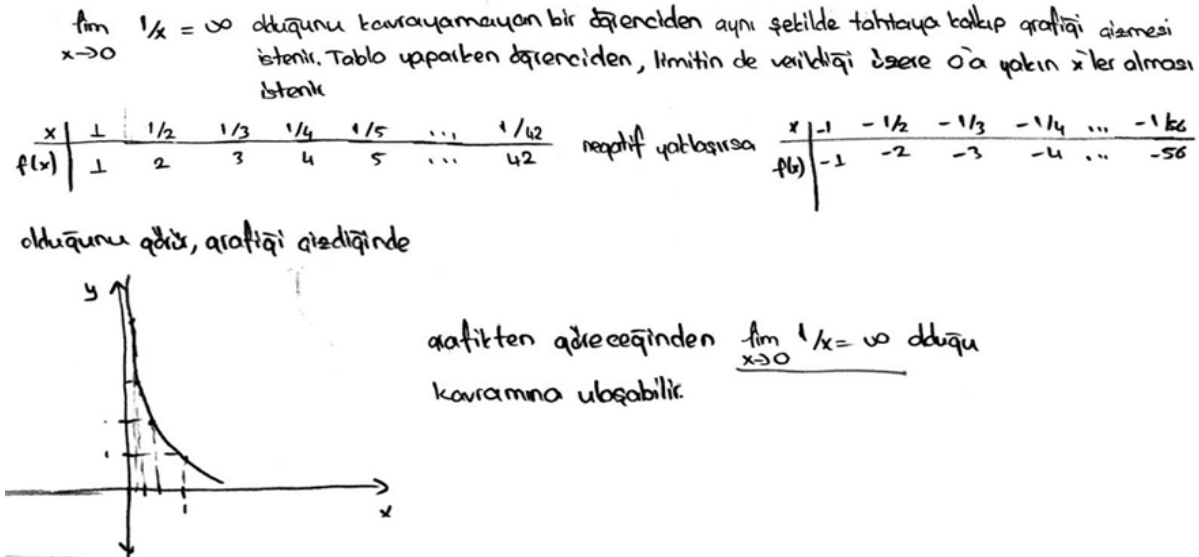 lim 1/x = ∞ olduğunu kavrayamayan bir öğrenciden aynı şekilde tahtaya kalkıp grafiği çizmesi
x→0 istenir. Tablo yaparken öğrenciden, limitin de verildiği üzere 0'a yakın x'ler alması
istenir
x | 1 1/2 1/3 1/4 1/5 ... 1/42 negatif yaklaşırsa x | -1 -1/2 -1/3 -1/4 ... -1/56
f(x) | 1 2 3 4 5 ... 42 f(x) | -1 -2 -3 -4 ... -56
olduğunu görür, grafiği çizdiğinde
y
grafikten göreceğinden lim 1/x = ∞ olduğu
x→0
kavramına ulaşabilir.
1
x